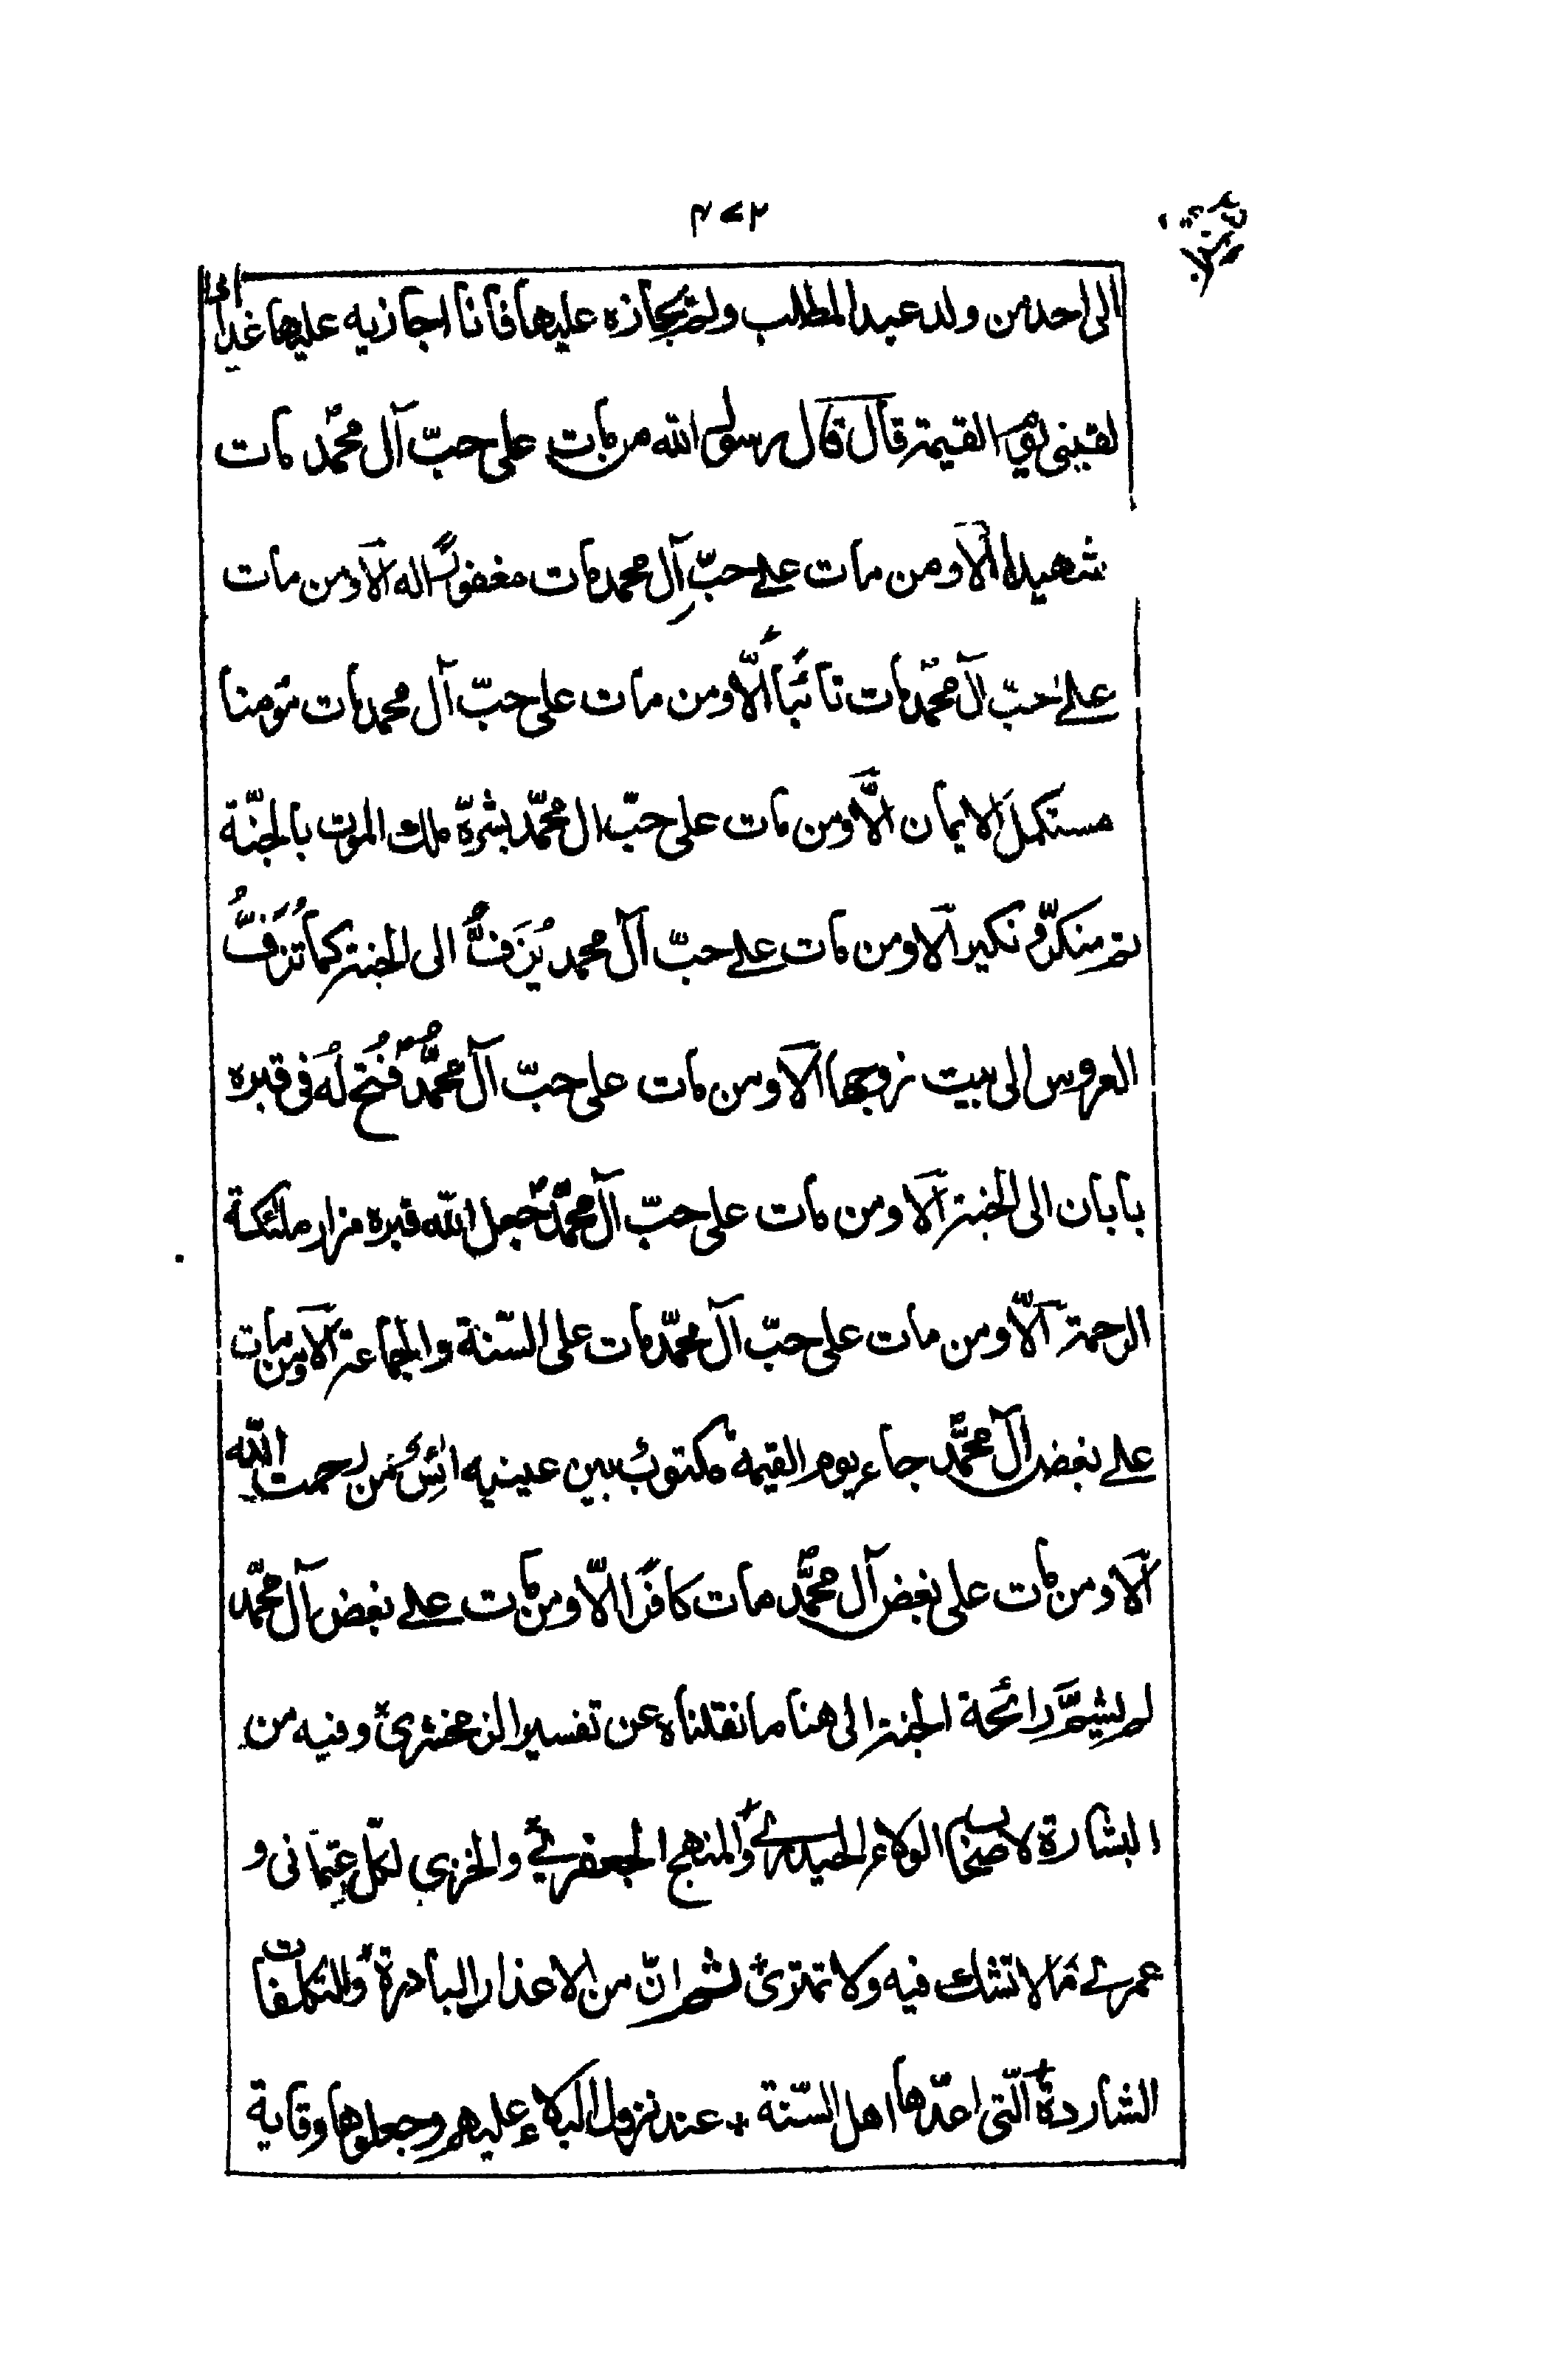 ۲۷۴
الى احد من ولد عبد المطلب ولم يجازه عليها فانا اجازيه عليها غدا اذا
لقينى يوم القيمة قال قال رسول الله من مات على حبّ آل محمّد مات
شهيدا الا ومن مات على حبّ آل محمد مات مغفورا له الا ومن مات
على حبّ آل محمّد مات تائبًا الّا ومن مات على حبّ آل محمد مات مؤمنا
مستكمل الايمان الّا ومن مات على حبّ ال محمّد بشّره ملك الموت بالجنّة
ثم منكر ونكير الّا ومن مات على حبّ آل محمد يُزَفُّ الى الجنة كما تُزَفُّ
العروس الى بيت زوجها الا ومن مات على حبّ آل محمّد فُتح لُه فى قبره
بابان الى الجنة الا ومن مات على حبّ آل محمّد جعل الله قبره مزار ملئكة
الرحمة الّا ومن مات على حبّ آل محمّد مات على السّنة والجماعة الا ومن مات
على بغض آل محمّد جاء يوم القيمة مكتوبٌ بين عينيه ائس من رحمت الله
الّا ومن مات على بغض آل محمّد مات كافرًا الّا ومن مات على بغض آل محمّد
لم يشمّ رائحة الجنة الى هنا ما نقلناه عن تفسير الزمخشرى وفيه من
البشارة لاصحاب الولاء الحيدرى والمنهج الجعفرى والخزى لكلّ عثمانى و
عمرى ما لا تشك فيه ولا تمترى ثم انّ من الاعذار البادرة والتكلفات
الشاردة الّتى اعدّها اهل السّنة + عند نزول البلاء عليهم وجعلوها وقاية